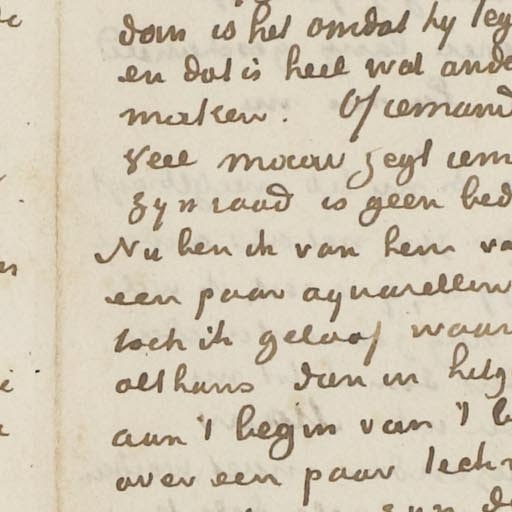 dan is het omdat hy teg
en dat is heel wat ande
maken. Of iemand
veel maar zegt iem
zyn raad is geen bed
Nu ben ik van hem va
een paar aquarellen
toch ik geloof waar
althans dan in hetg
aan 't begin van 't b
over een paar tech
zyn d